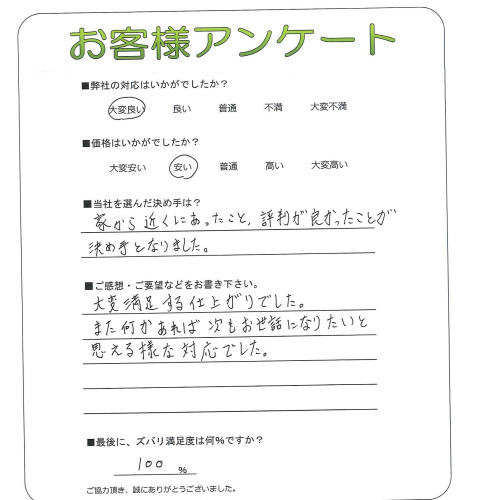 お客様アンケート
■弊社の対応はいかがでしたか？
大変良い 良い 普通 不満 大変不満
■価格はいかがでしたか？
大変安い 安い 普通 高い 大変高い
■当社を選んだ決め手は？
家から近くにあったこと、評判が良かったことが
決め手となりました。
■ご感想・ご要望などをお書き下さい。
大変満足する仕上がりでした。
また何かあれば次もお世話になりたいと
思える様な対応でした。
■最後に、ズバリ満足度は何%ですか？
100 %
ご協力頂き、誠にありがとうございました。